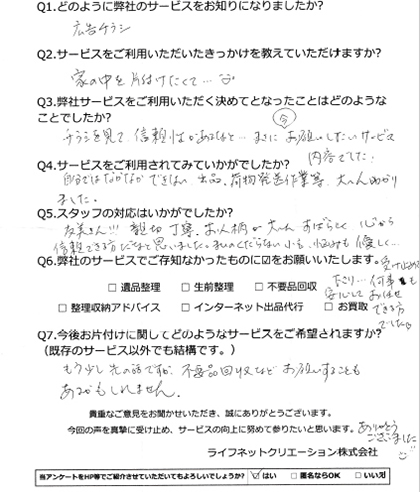 Q1.どのように弊社のサービスをお知りになりましたか?
広告チラシ
Q2.サービスをご利用いただいたきっかけを教えていただけますか?
家の中を片付けたくて…
Q3.弊社サービスをご利用いただく決めてとなったことはどのような
ことでしたか?
今
チラシを見て、信頼性があるなと… まさに お願いしたいサービス
内容でした!
Q4.サービスをご利用されてみていかがでしたか?
自分ではなかなかできない 出品、荷物発送作業等、大へん助かり
ました。
Q5.スタッフの対応はいかがでしたか?
友美さん!!! 親切、丁寧、お人柄が大へんすばらしく 心から
信頼できる方だなと思いました。私のくだらない 悩みも 優しく…
Q6.弊社のサービスでご存知なかったものに☑をお願いいたします。
受け止めて
下さり… 何事も
安心してお任せ
できる方
でした。
□ 遺品整理 □ 生前整理 □ 不要品回収
□ 整理収納アドバイス □ インターネット出品代行 □ お買取
Q7.今後お片付けに関してどのようなサービスをご希望されますか?
(既存のサービス以外でも結構です。)
もう少し先の話ですが、不要品回収など お願いすることも
あるかもしれません。
貴重なご意見をお聞かせいただき、誠にありがとうございます。
今回の声を真摯に受け止め、サービスの向上に努めて参りたいと思います。
ありがとう
ございました
ライフネットクリエーション株式会社
当アンケートをHP等でご紹介させていただいてもよろしいでしょうか? ☑ はい □ 匿名ならOK □ いいえ